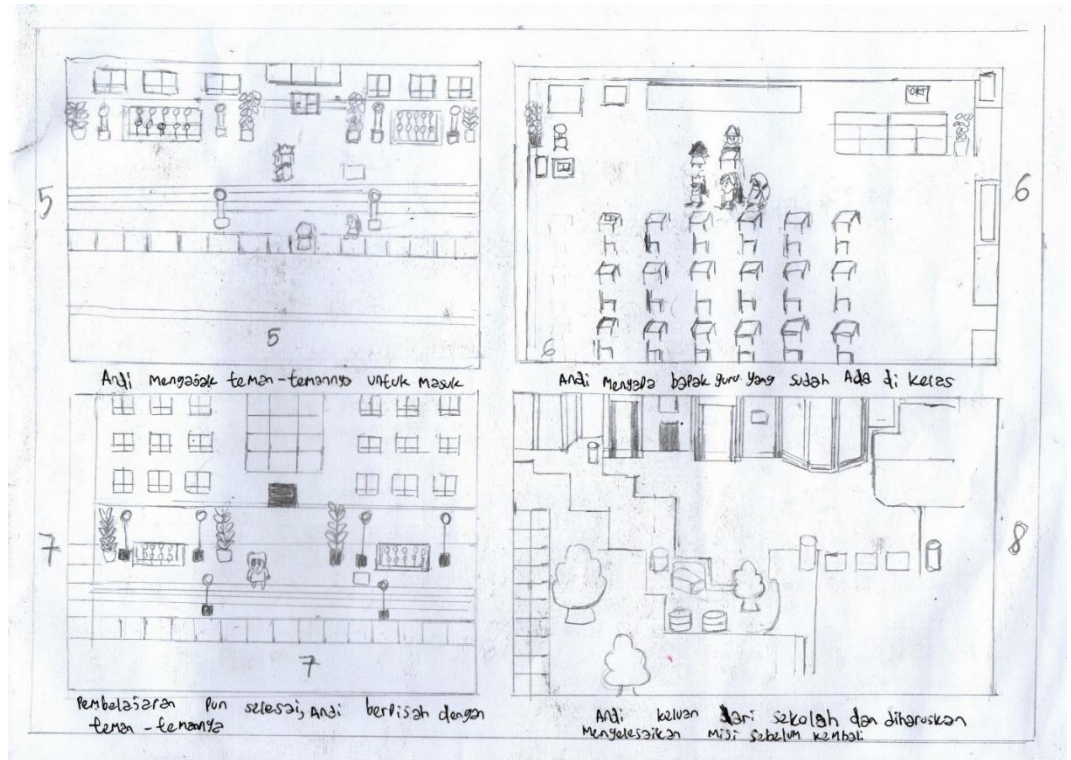 5
5
Andi mengajak teman-temannya untuk masuk
6
6
Andi Menyapa bapak guru yang sudah Ada di kelas
7
7
Pembelajaran Pun selesai, Andi berpisah dengan
teman-temannya
8
Andi keluar dari sekolah dan diharuskan
Mengelesaikan Misi sebelum kembali